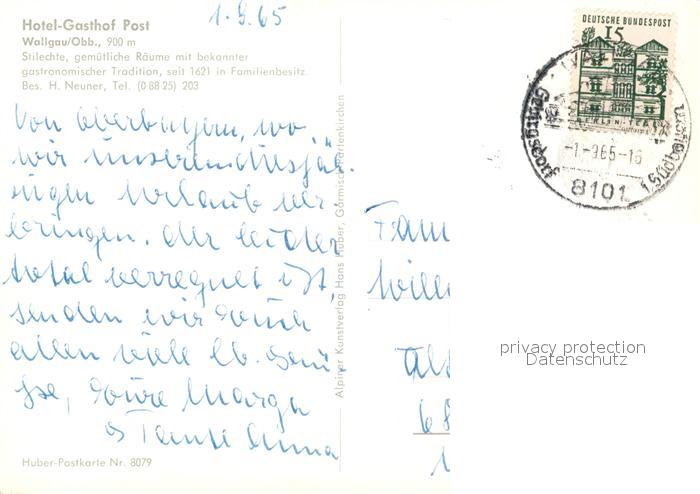 1.9.65
Hotel-Gasthof Post
Wallgau/Obb., 900 m
Stilechte, gemütliche Räume mit bekannter
gastronomischer Tradition, seit 1621 in Familienbesitz.
Bes. H. Neuner, Tel. (0 88 25) 203
Von Oberbayern, wo
wir unseren diesjäh-
rigen Urlaub ver-
bringen, der leider
total verregnet ist,
senden wir Euch
allen viele lb. Grü-
sse, Eure Marga
& Tante Anna
Huber-Postkarte Nr. 8079
Alpiner Kunstverlag Hans Huber, Garmisch-Partenkirchen
DEUTSCHE BUNDESPOST
15
BERLIN-TEGEL
-1.-9.65-16
8101
Fam
Will
privacy protection
Datenschutz